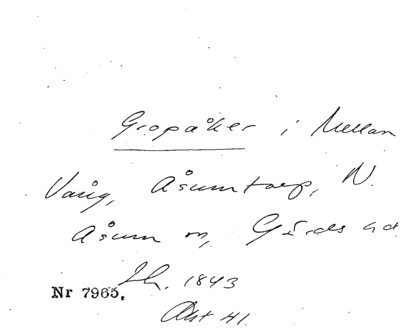 Gropåker i Mellan
Vång, Åsumtorp, N.
Åsum sn, Gärds hd
Lh. 1843
Nr 7965.
Akt 41.